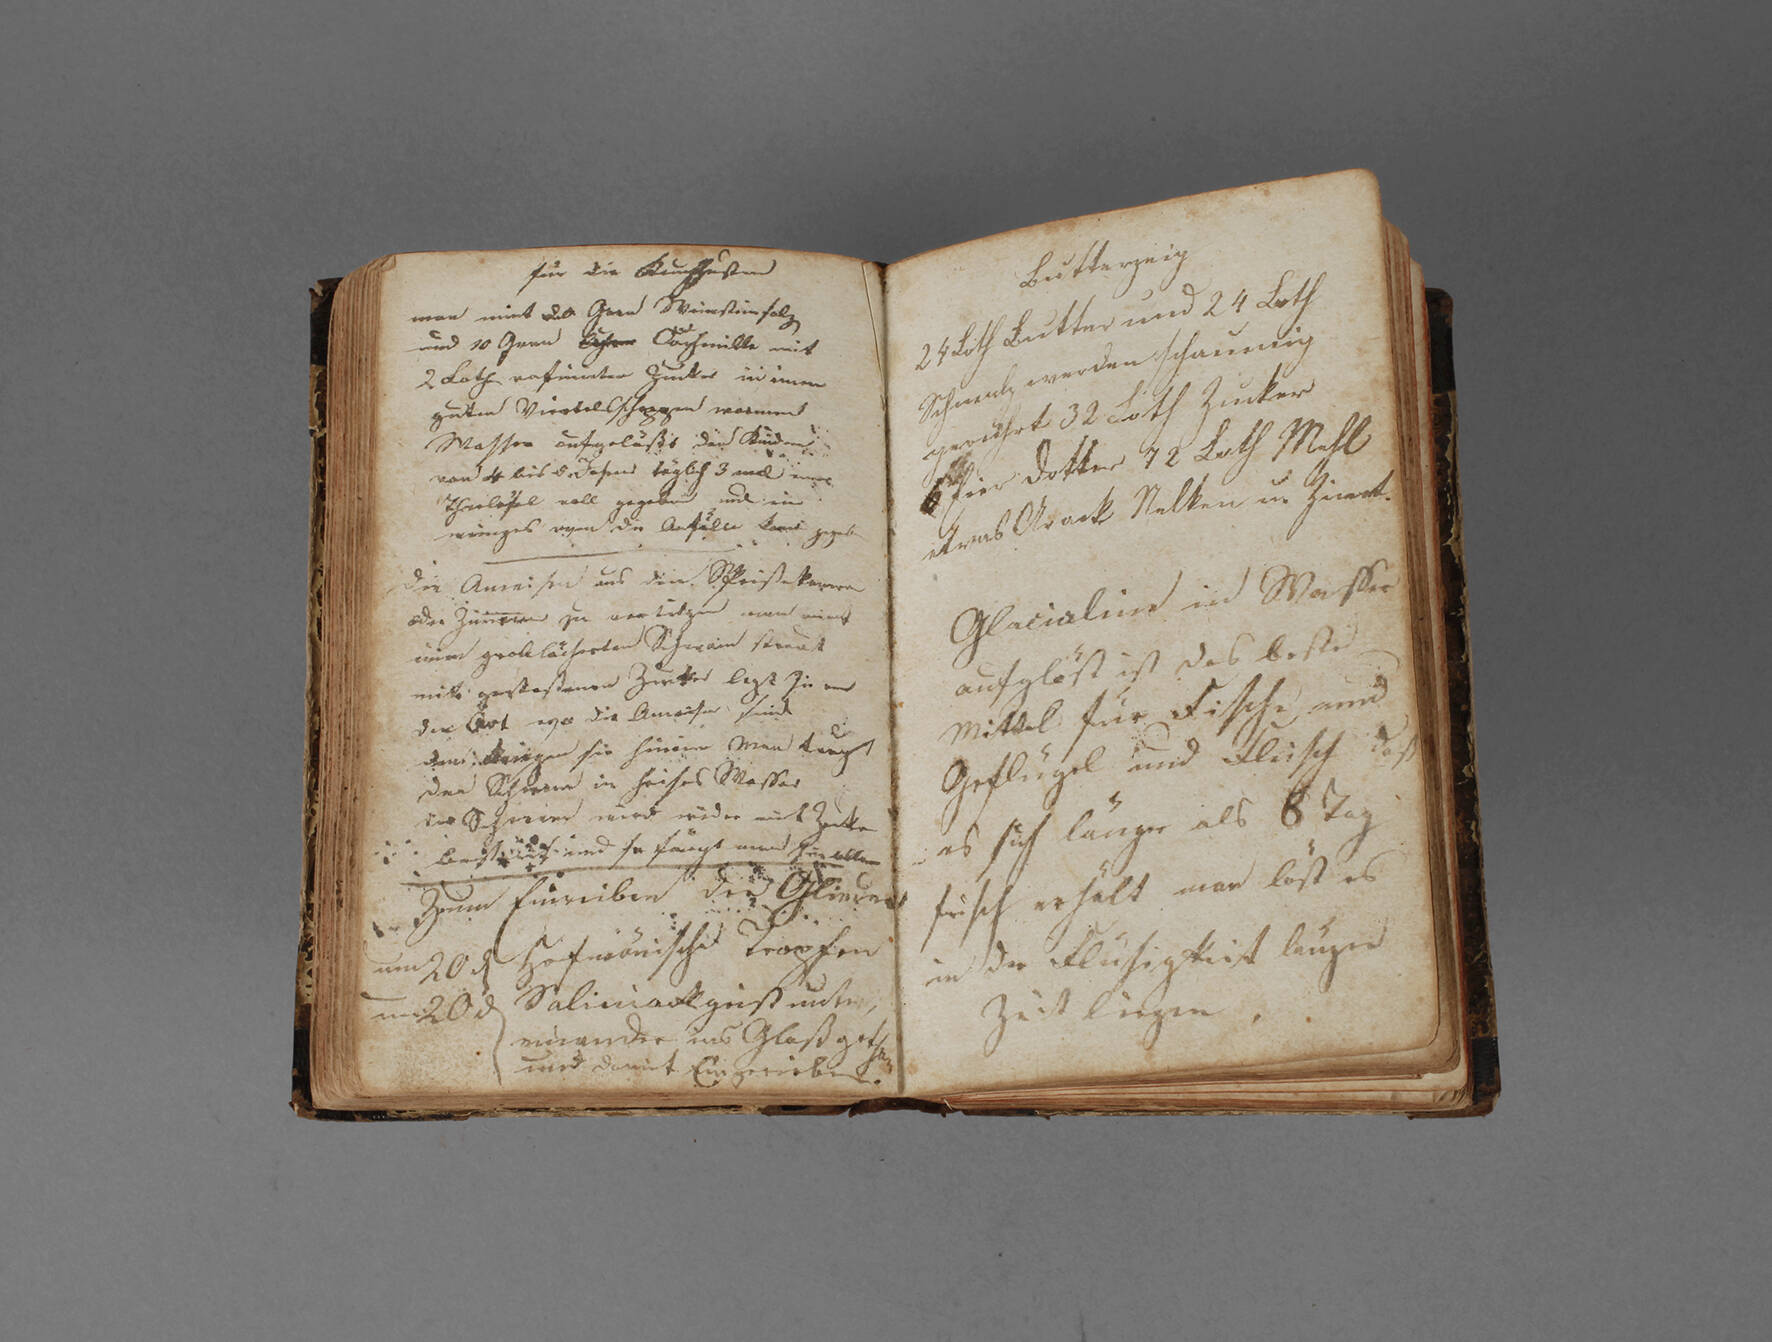 für die Keuchhusten
man nimt Gran Weinsteinsalz
und 10 Gran Cochenille mit
2 Loth rafinirten Zucker in einen
guten Viertelsschoppen warmen
Wasser aufgelößt den Kinder
von 4 bis 8 Jahre täglich 3 mal einen
Theelöfel voll gegeben und ein
weniges wen die Anfälle gegeb
Die Ameisen aus den Speisekamer
oder Zimmer zu vertilgen man nimt
einen groblächerten Schwam streut
mit gestosenen Zucker legt ihn an
den Ort wo die Ameisen sind
dan kriegen sie hinein Man taugt
den Schwam in heises Wasser
der Schwam wird wider mit Zucker
bestreut und so fängt man sie alle
Zum Einreiben der Glieder
um 20 d Hofmänische Tropfen
um 20 d Salmiackgeist unter,
einander ins Glaß gethan
und damit Eingerieben.
Butterzeig
24 Loth Butter und 24 Loth
Schmalz werden schaumig
gerührt 32 Loth Zucker
6 Eier Dotter 72 Loth Mehl
etwas Arack Nelken u. Zimt.
Glacialin in Wasser
aufglöst ist das beste
Mittel für Fische und
Geflügel und Fleisch daß
es sich länger als 8 Tag
frisch erhält man löst es
in der Flüsigkeit länger
Zeit liegen.